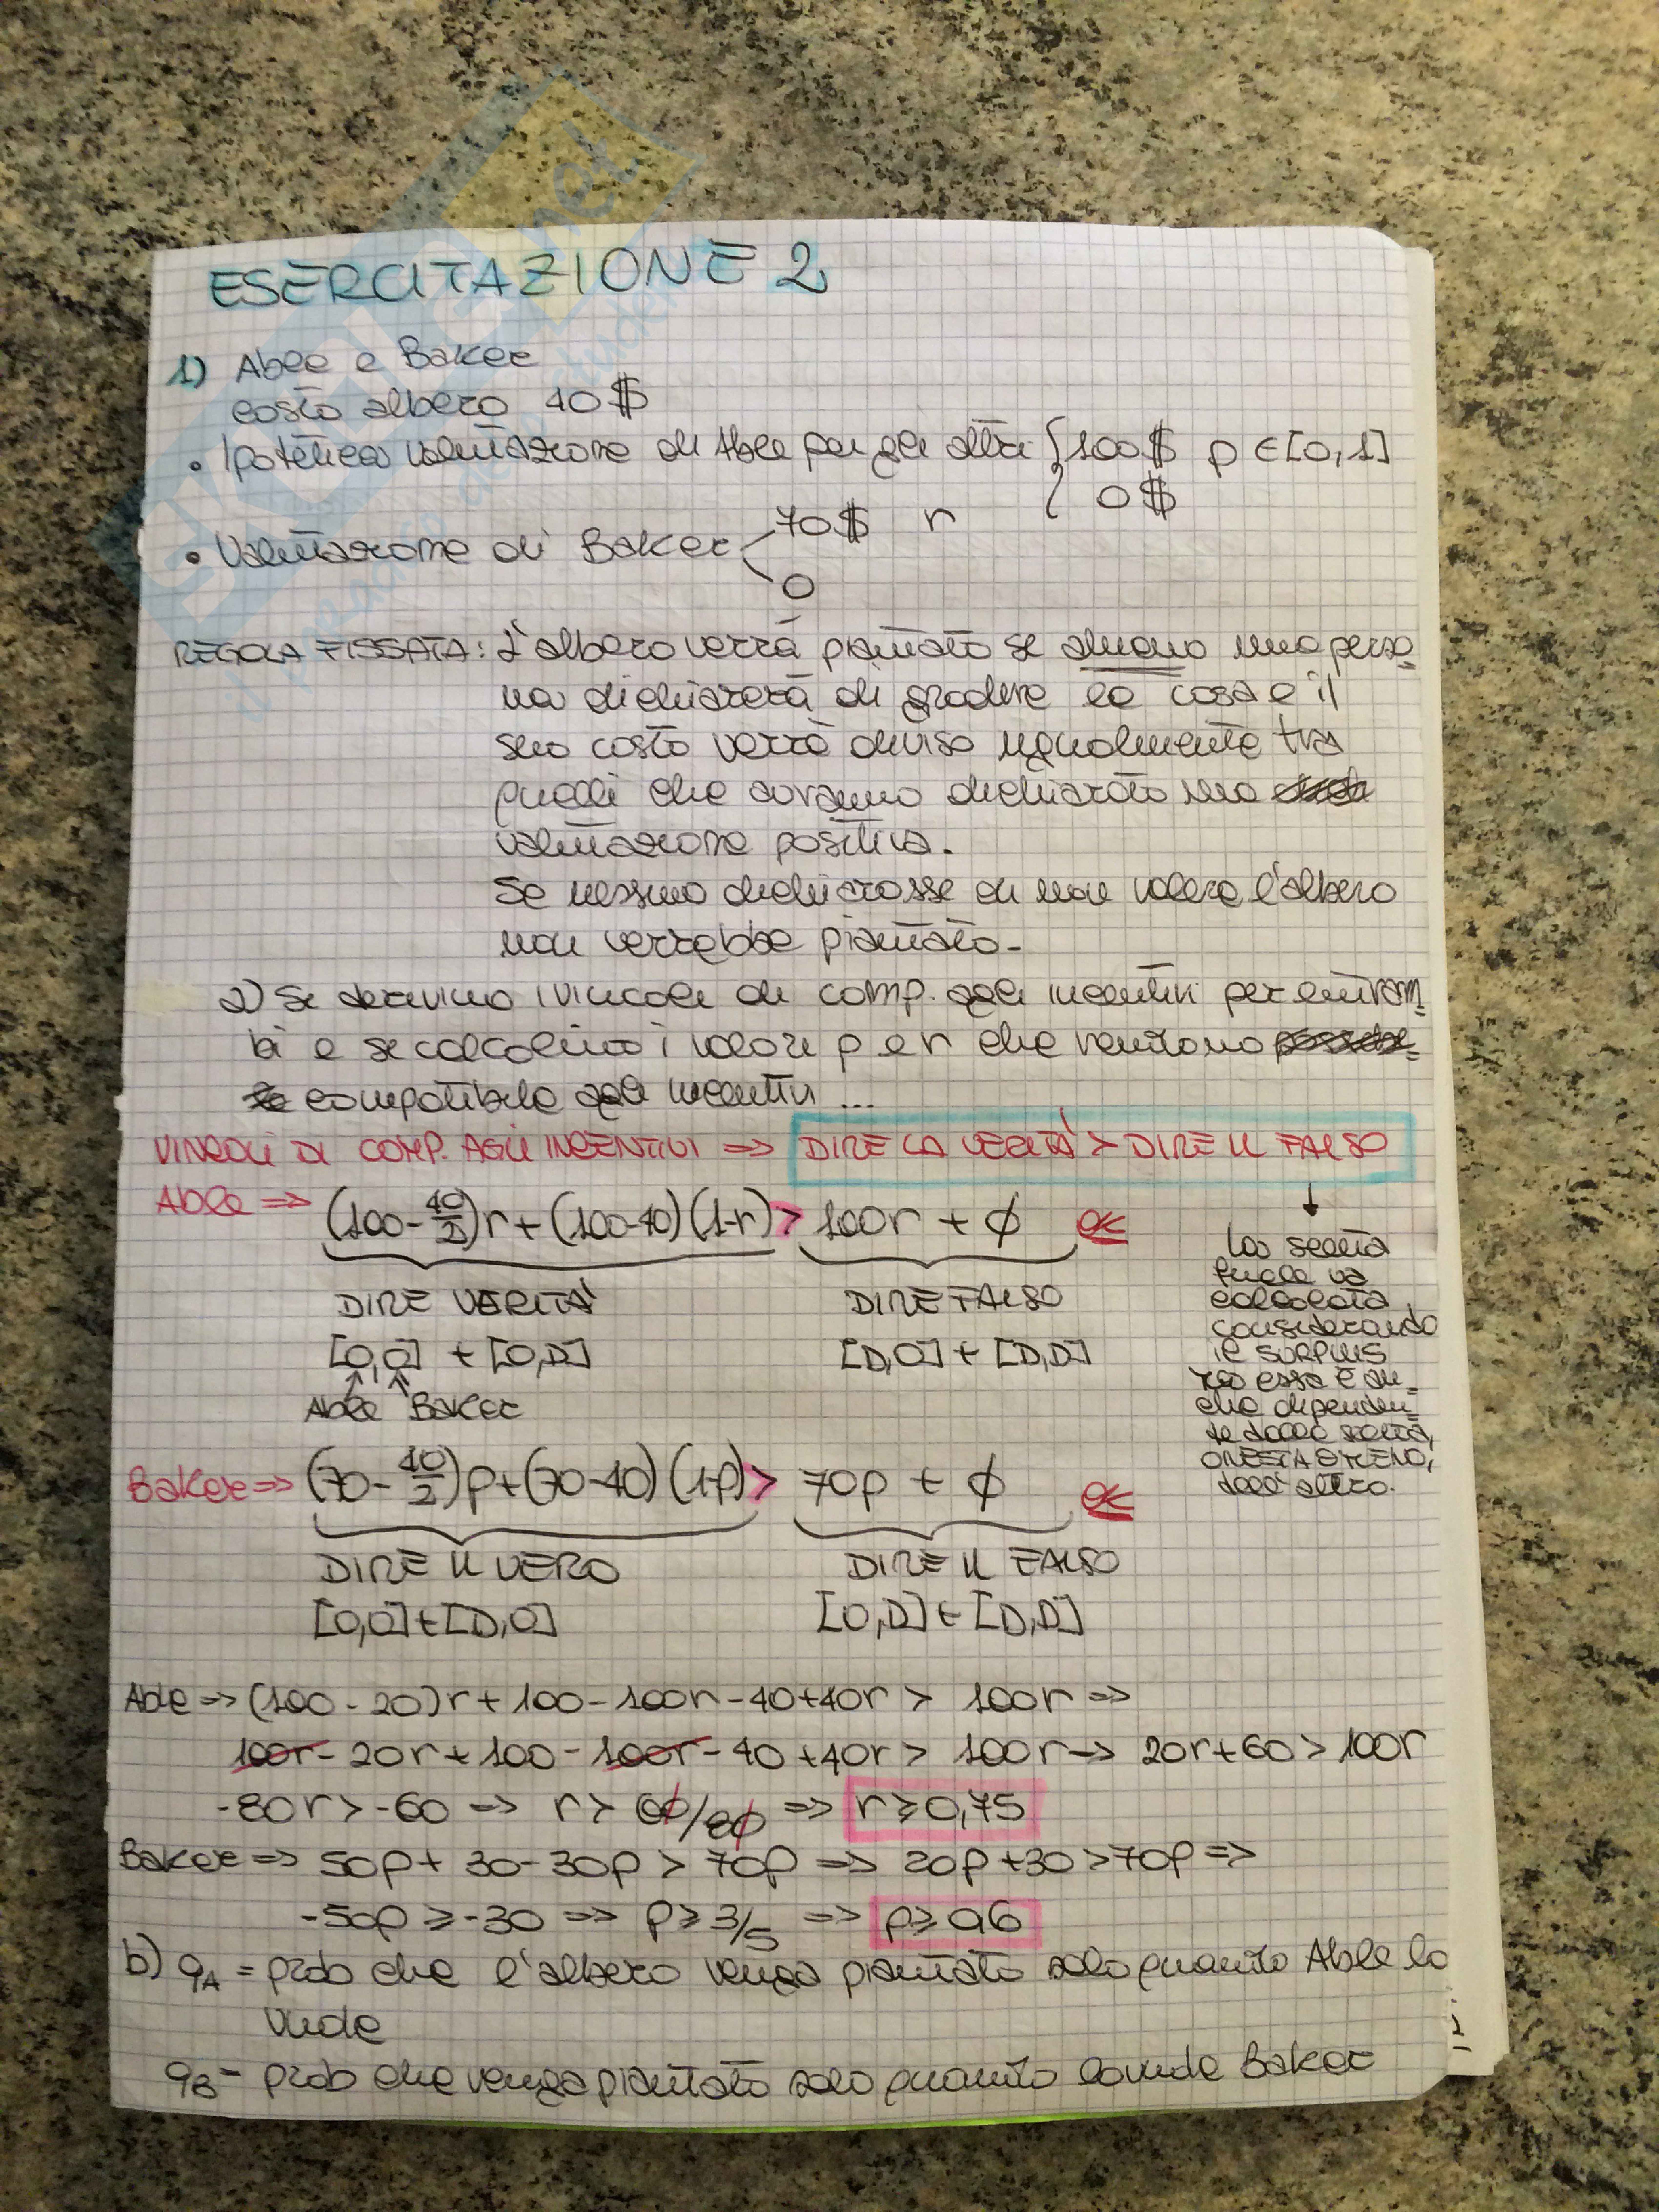 ESERCITAZIONE 2
1) Able e Baker
costo albero 40$
• Ipotetica valutazione di Able per gli altri { 100$ p ∈ [0,1]
0$
• Valutazione di Baker < 70$ r
0
REGOLA FISSATA: L'albero verrà piantato se almeno una perso-
na dichiarerà di gradire la cosa e il
suo costo verrà diviso ugualmente tra
quelli che avranno dichiarato una
valutazione positiva.
Se nessuno dichiarasse di non volere l'albero
non verrebbe piantato.
a) Si derivino i vincoli di comp. agli incentivi per entram-
bi e si calcolino i valori p e r che rendono
compatibile agli incentivi ...
VINCOLI DI COMP. AGLI INCENTIVI => DIRE LA VERITÀ > DIRE IL FALSO
Able => (100 - 40/2)r + (100-40)(1-r) > 100r + ∅ OK
DIRE VERITÀ DIRE FALSO
[O,O] + [O,D] [D,O] + [D,D]
Able Baker
la scelta
finale va
calcolata
considerando
il SURPLUS
ma essa è an-
che dipenden-
te dalla scelta,
ONESTA O MENO,
dell'altro.
Baker => (70 - 40/2)p + (70-40)(1-p) > 70p + ∅ OK
DIRE IL VERO DIRE IL FALSO
[O,O] + [D,O] [O,D] + [D,D]
Able => (100 - 20)r + 100 - 100r - 40 + 40r > 100r =>
100r - 20r + 100 - 100r - 40 + 40r > 100r -> 20r + 60 > 100r
-80r > -60 => r > 60/80 => r ≥ 0,75
Baker => 50p + 30 - 30p > 70p => 20p + 30 > 70p =>
-50p ≥ -30 => p ≥ 3/5 => p ≥ 0,6
b) qA = prob che l'albero venga piantato solo quando Able lo
vuole
qB = prob che venga piantato solo quando lo vuole Baker